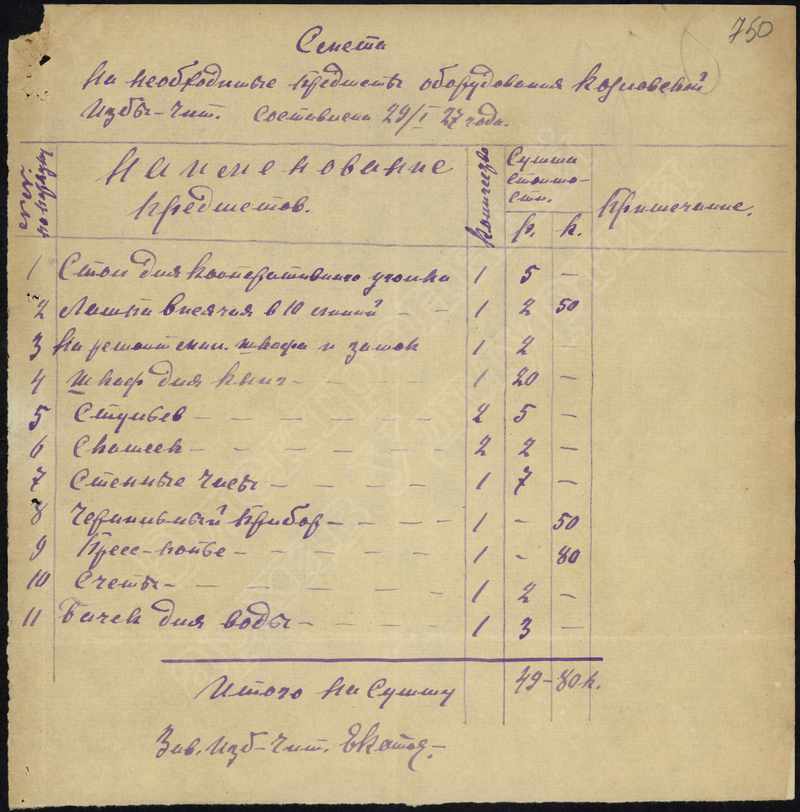 750
Смета
На необходимые предметы оборудования Козловской
Избы-Чит. составлена 29/I 27 года.
№№ по порядку
Наименование предметов.
Количество
Сумма стоимости.
р. к.
Примечание.
1 Стол для кооперативного уголка 1 5 —
2 Лампа висячая в 10 линий — - 1 2 50
3 На ремонт имн. шкафа и замок 1 2 —
4 Шкаф для книг - - - - - 1 20 —
5 Стульев - - - - - - - 2 5 —
6 Скамеек - - - - - - - 2 2 —
7 Стенные часы - - - - - 1 7 —
8 Чернильный прибор - - - - 1 - 50
9 Пресс-папье - - - - - - 1 - 80
10 Счеты - - - - - - - 1 2 —
11 Бачек для воды - - - - - 1 3 —
Итого на сумму 49-80 к.
Зав. Изб-Чит.